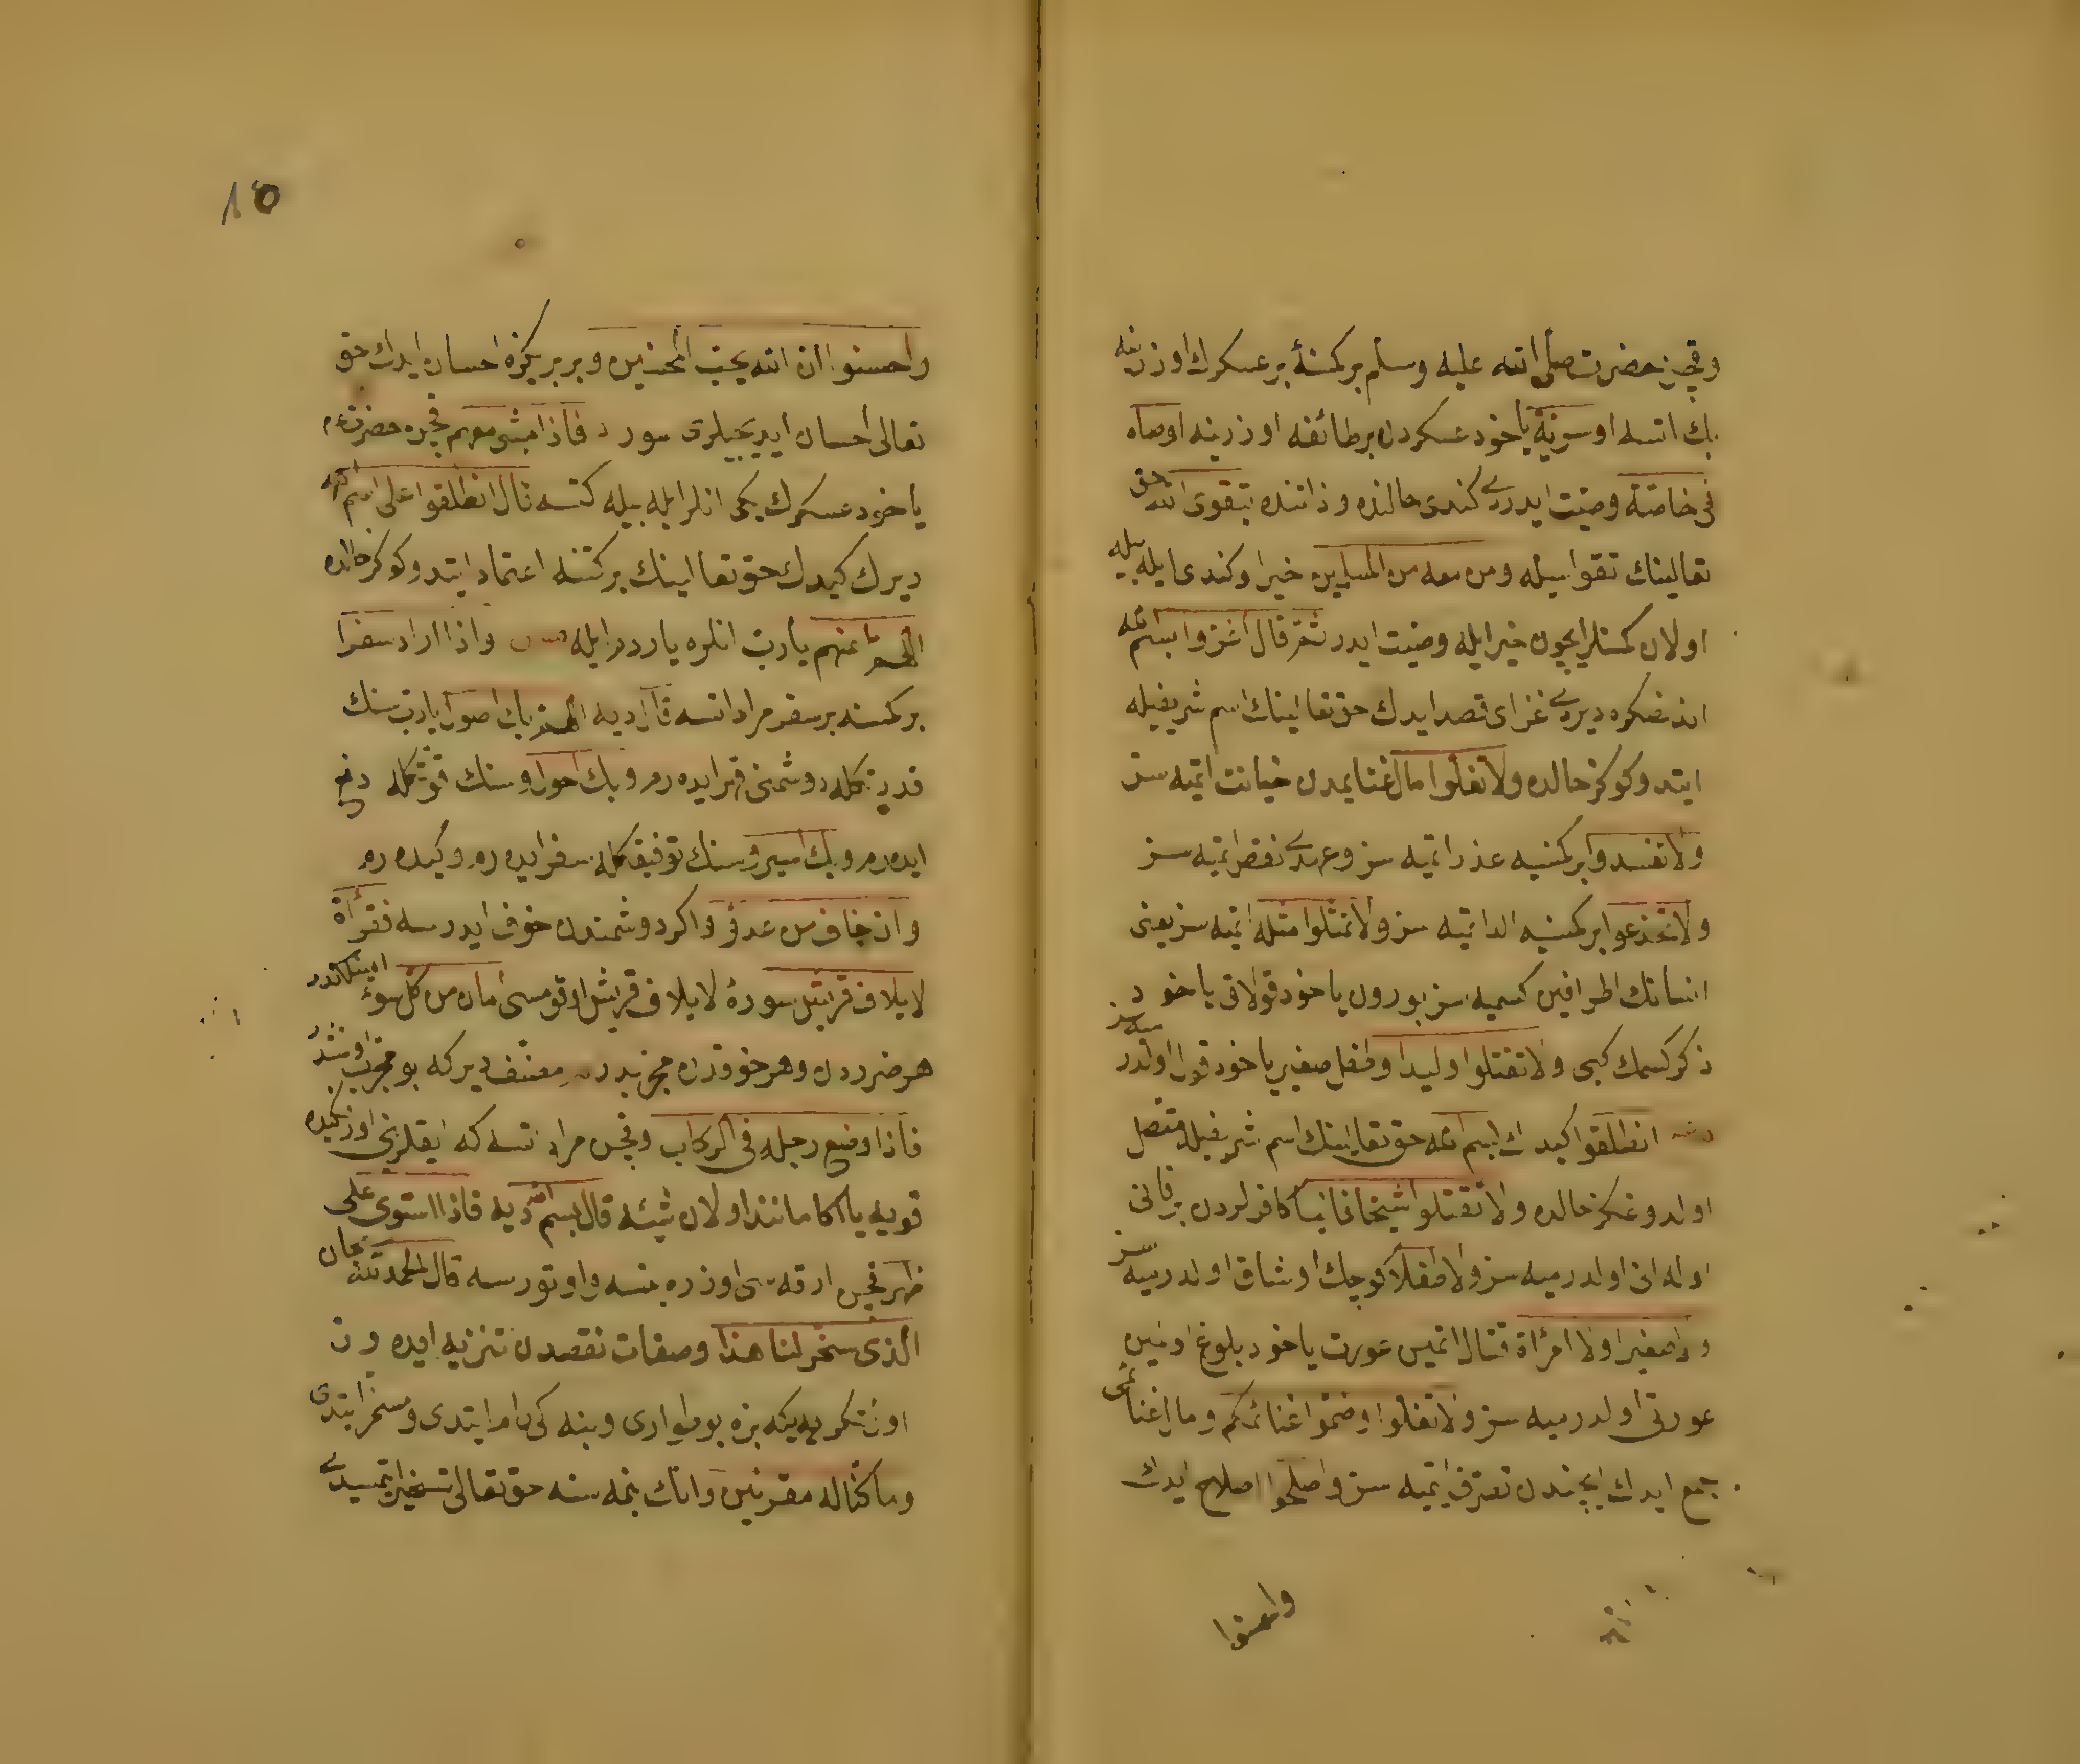 وقچن حضرت صلى الله عليه وسلم بر كمسنهٔ بر عسكرك اوزرينه
بك اتسه او سريّة ياخود عسكردن بر طائفه اوزرينه اوصاه
فى خاصّة وصيّت ايدردى كندى حالنده و ذاتنده بتقوى الله حق
تعالينك تقواسيله ومن معه من المسلمين خيرا وكندى ايله بيله
اولان كمسنلر ايچون خير ايله وصيّت ايدر ثمّ قال اغزوا بسم الله
اندنصكره ديردى غزاى قصد ايدك حق تعالينك اسم شريفيله
ابتدوكوكز حالده ولا تغلّوا مال غنايمدن خيانت ايتميه سز
ولا تغدروا بر كمسيه غدر ايتميه سز وعهدى نقض ايتميه سز
ولا تخذعوا بر كمسيه الد ايتميه سز ولا تمثلوا مثله ايتميه سز يعنى
انسانك اطرافين كسميه سز بورون ياخود قولاق ياخود
ذكر كسمك كبى ولا تقتلوا وليدا وطفل صغير ياخود قول اولدرميه سز
انطلقوا كيدك بسم الله حق تعالينك اسم شريفيله متصل
اولدوغكز حالده ولا تقتلوا شيخا فانيا كافرلردن بر فانى
اوله انى اولدرميه سز ولا طفلا كوچك اوشاق اولدرميه سز
ولا صغيرا ولا امرأة قتال اتمين عورت ياخود بلوغ اولمين
عورتى اولدرميه سز ولا تغلوا وضمّوا غنائمكم ومال غنائمى
جمع ايدك ايچندن تصرّف ايتميه سز واصلحوا اصلاح ايدك
واحسنوا
١٥
واحسنوا ان الله يحبّ المحسنين وبر بريكزه احسان ايدك حق
تعالى احسان ايديجيلرى سور فاذا مشى معهم قچن حضرت
ياخود عسكرك بكى انلر ايله بيله كتسه قال انطلقوا على اسم الله
ديرك كيدك حق تعالينك بركتنه اعتماد ايتدوكوكز حالده
اللهمّ اعنهم يا ربّ انلره ياردم ايله واذا اراد سفرا
بر كمسنه بر سفر مراد اتسه قال ديه اللهمّ بك اصول يا ربّ سنك
قدرتكله دوشمنى قهر ايده رم وبك احول وسنك قوّتكله دفع
ايده رم وبك اسير وسنك توفيقكله سفر ايده رم وكيده رم
وان خاف من عدوّ واكر دوشمندن خوف ايدرسه فقرأة
لايلاف قريش سورهٔ لايلاف قريش اوقومسى امان من كلّ سوء امينلكدر
هر ضرردن وهر خوفدن مجرّبدر مصنّف ديركه بو مجرّب اولمشدر
فاذا وضع رجله فى الركاب وقچن مراد اتسه كه اياقلرينى اوزنكيده
قويه يا اكا مانند اولان شيئه قال بسم الله ديه فاذا استوى على
ظهرها قچن ارقه سى اوزره بنسه واوتورسه قال الحمد لله سبحان
الذى سخّر لنا هذا وصفات نقصدن تنزيه ايده رم
اول تكرى يه كه بزه بو طوارى وبنه كى رام ايتدى ومسخّر ايتدى
وما كنّا له مقرنين وانك بنمه سنه حق تعالى تسخير ايتمسيدى